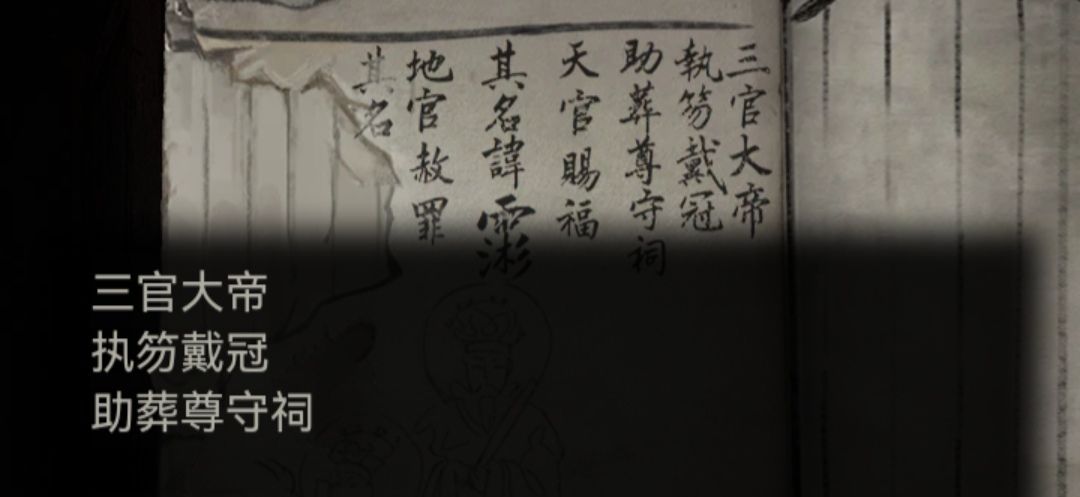 三官大帝
執笏戴冠
助葬尊守祠
天官賜福
其名諱
地官赦罪
其名
三官大帝
执笏戴冠
助葬尊守祠